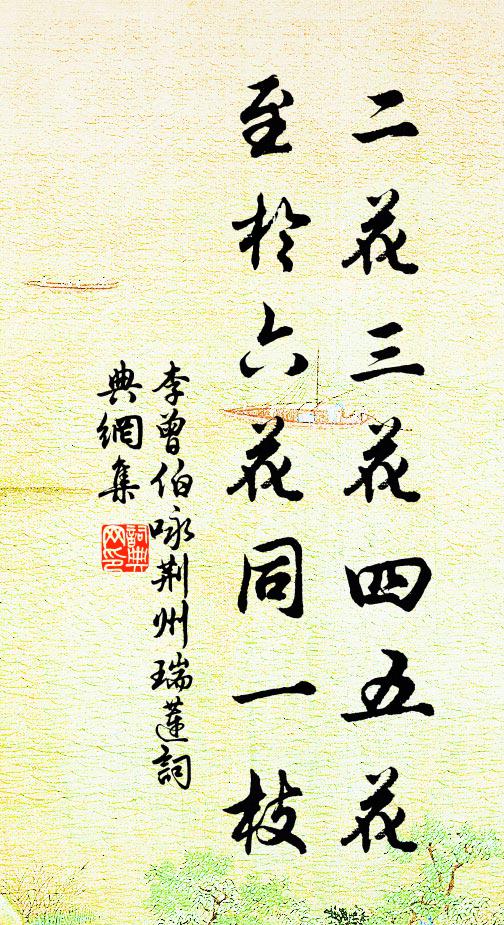 二花三花四五花
至於六花同一枝
李曾伯咏荆州瑞蓮詞
典網集
詞典网印